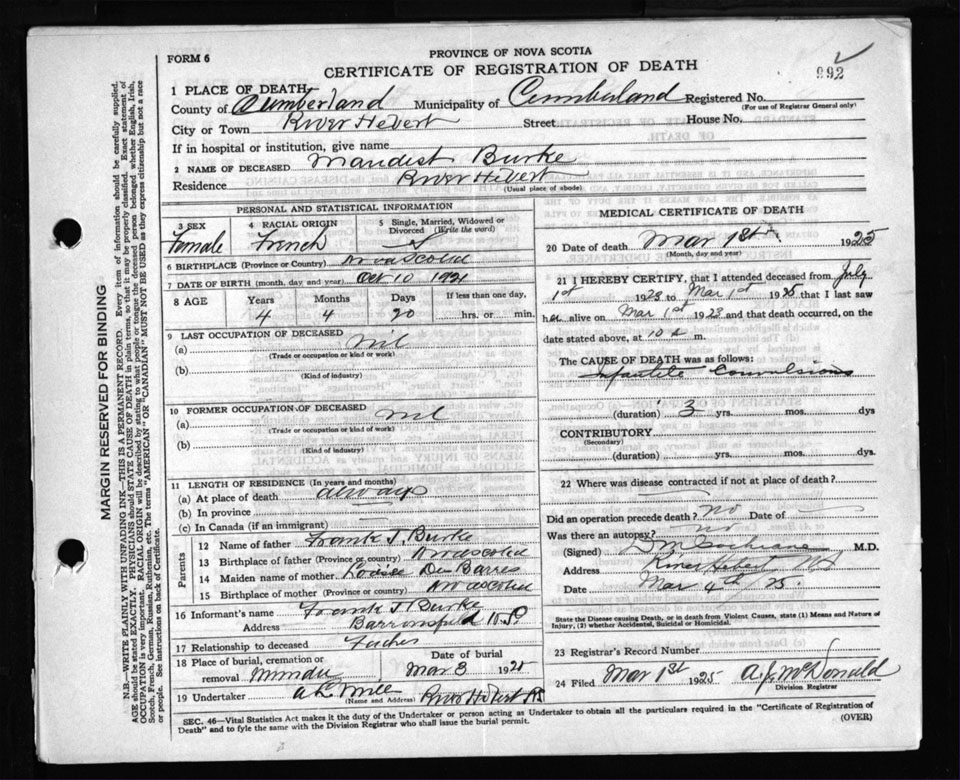 FORM 6
PROVINCE OF NOVA SCOTIA
CERTIFICATE OF REGISTRATION OF DEATH
992
1 PLACE OF DEATH,
County of Cumberland Municipality of Cumberland Registered No.
(For use of Registrar General only)
City or Town River Hebert Street House No.
If in hospital or institution, give name
2 NAME OF DECEASED Burke
Residence River Hebert
(Usual place of abode)
PERSONAL AND STATISTICAL INFORMATION
3 SEX 4 RACIAL ORIGIN 5 Single, Married, Widowed or Divorced (Write the word)
Female French S
6 BIRTHPLACE (Province or Country) Nova Scotia
7 DATE OF BIRTH (month, day and year) Oct 10 1921
8 AGE Years Months Days If less than one day,
4 4 20 hrs. or min.
9 LAST OCCUPATION OF DECEASED
(a) nil
(Trade or occupation or kind or work)
(b)
(Kind of industry)
10 FORMER OCCUPATION OF DECEASED
(a) nil
(Trade or occupation or kind of work)
(b)
(Kind of industry)
11 LENGTH OF RESIDENCE (In years and months)
(a) At place of death always
(b) In province
(c) In Canada (if an immigrant)
Parents
12 Name of father Frank J. Burke
13 Birthplace of father (Province or country) Nova Scotia
14 Maiden name of mother Louise Des Barres
15 Birthplace of mother (Province or country) Nova Scotia
16 Informant's name Frank J Burke
Address Barronsfield N.S.
17 Relationship to deceased Father
18 Place of burial, cremation or removal Minudie
Date of burial
Mar 3 1925
19 Undertaker River Hebert NS
(Name and Address)
MEDICAL CERTIFICATE OF DEATH
20 Date of death Mar 1st 1925
(Month, day and year)
21 I HEREBY CERTIFY, that I attended deceased from July
1st 1923 to Mar 1st 1925 that I last saw
her alive on Mar 1st 1923 and that death occurred, on the
date stated above, at 10 a m.
The CAUSE OF DEATH was as follows:
Infantile Convulsions
(duration) 3 yrs. mos. dys
CONTRIBUTORY
(Secondary)
(duration) yrs. mos. dys
22 Where was disease contracted if not at place of death?
Did an operation precede death? no Date of
Was there an autopsy? no
(Signed) D M Cochrane M.D.
Address River Hebert NS
Date Mar 4th 25.
State the Disease causing Death, or in death from Violent Causes, state (1) Means and Nature of
Injury, (2) whether Accidental, Suicidal or Homicidal.
23 Registrar's Record Number
24 Filed Mar 1st 1925 A. J. McDonald
Division Registrar
SEC. 46—Vital Statistics Act makes it the duty of the Undertaker or person acting as Undertaker to obtain all the particulars required in the "Certificate of Registration of
Death" and to fyle the same with the Division Registrar who shall issue the burial permit.
(OVER)
MARGIN RESERVED FOR BINDING
N.B.—WRITE PLAINLY WITH UNFADING INK—THIS IS A PERMANENT RECORD. Every item of information should be carefully supplied.
AGE should be stated EXACTLY. PHYSICIANS should STATE CAUSE OF DEATH in plain terms, so that it may be properly classified. Exact statement of
OCCUPATION is very important. RACIAL ORIGIN will be described by stating to what people or tongue the deceased person belonged whether English, Irish,
Scotch, French, German, Russian, Ruthenian, etc. The terms "AMERICAN" OR "CANADIAN" MUST NOT BE USED as they express citizenship but not a race
or people. See instructions on back of Certificate.